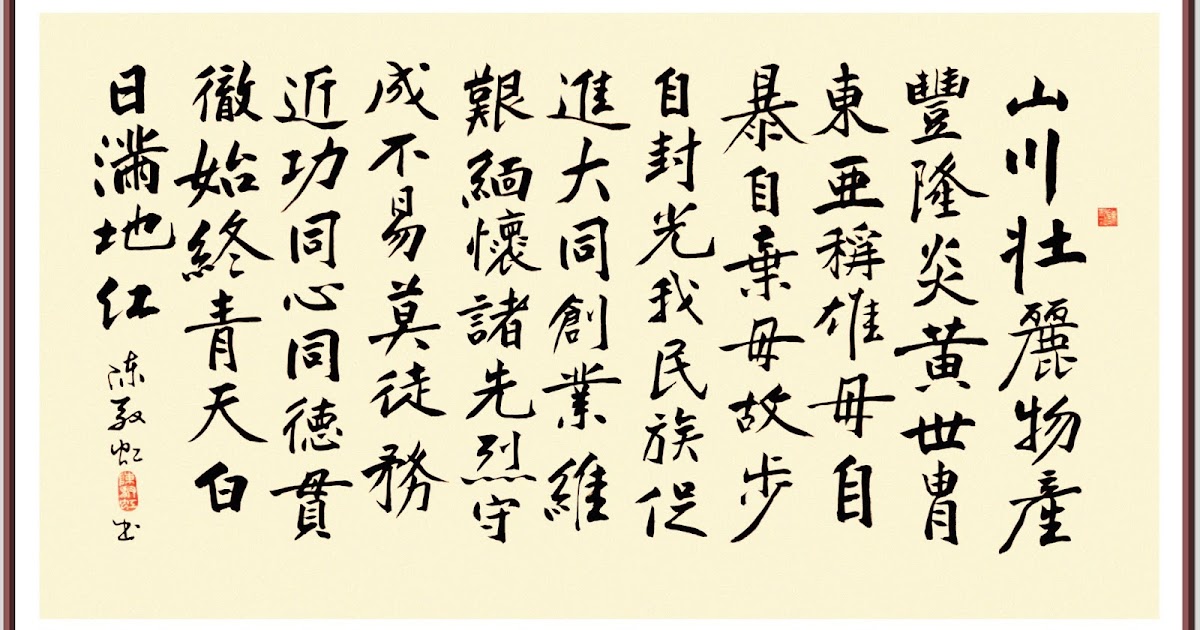 山川壯麗物產
豐隆炎黄世冑
東亜稱雄毋自
暴自棄毋故步
自封光我民族促
進大同創業維
艱緬懷諸先烈守
成不易莫徒務
近功同心同德貫
徹始終青天白
日滿地红
陈虹书